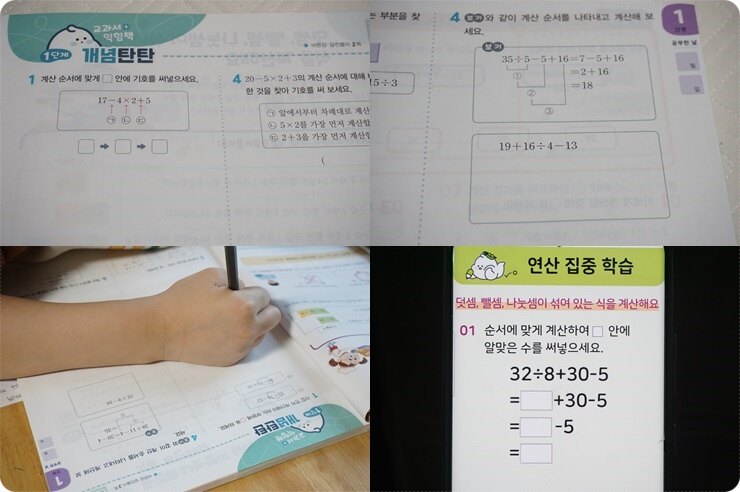 교과서+
익힘책
1단계 개념탄탄
바른답·알찬풀이 2쪽
1 계산 순서에 맞게 □ 안에 기호를 써넣으세요.
17-4×2+5
㉠ ㉡ ㉢
□ → □ → □
4 20-5×2+3의 계산 순서에 대해
한 것을 찾아 기호를 써 보세요.
㉠ 앞에서부터 차례대로 계산
㉡ 5×2를 가장 먼저 계산
㉢ 2+3을 가장 먼저 계산
(
는 부분을 찾
15÷3
4 보기와 같이 계산 순서를 나타내고 계산해 보
세요.
보기
35÷5-5+16=7-5+16
=2+16
=18
①
②
③
19+16÷4-13
1
단원
공부한 날
월
일
교과서+
익힘책
1단계
개념탄탄
4
1
연산 집중 학습
덧셈, 뺄셈, 나눗셈이 섞여 있는 식을 계산해요
01 순서에 맞게 계산하여 □ 안에
알맞은 수를 써넣으세요.
32÷8+30-5
=□+30-5
=□-5
=□